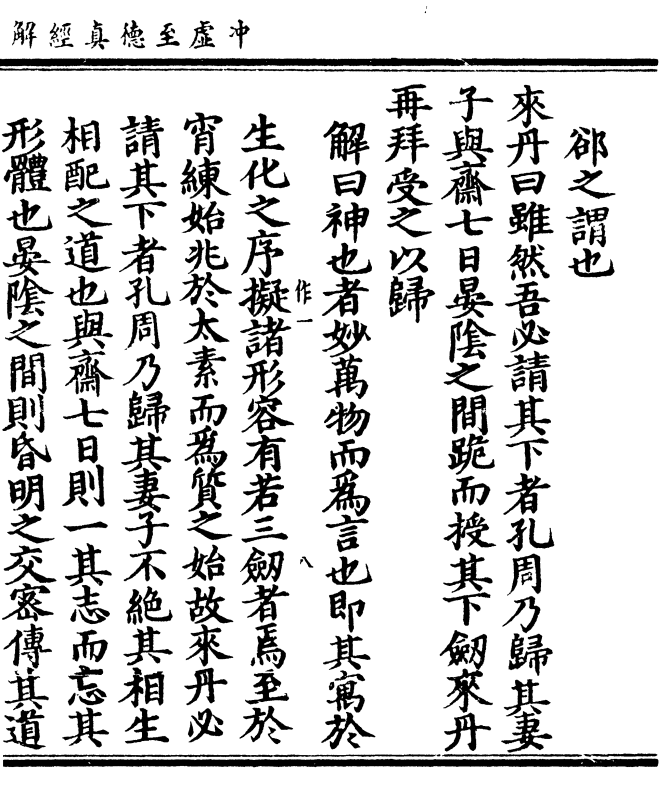 冲虛至德真經解
郤之謂也
來丹曰雖然吾必請其下者孔周乃歸其妻
子與齋七日晏陰之間跪而授其下劒來丹
再拜受之以歸
解曰神也者妙萬物而爲言也即其寓於
作一
八
生化之序擬諸形容有若三劒者焉至於
宵練始兆於太素而爲質之始故來丹必
請其下者孔周乃歸其妻子不絶其相生
相配之道也與齋七日則一其志而忘其
形體也晏陰之間則昏明之交密傳其道